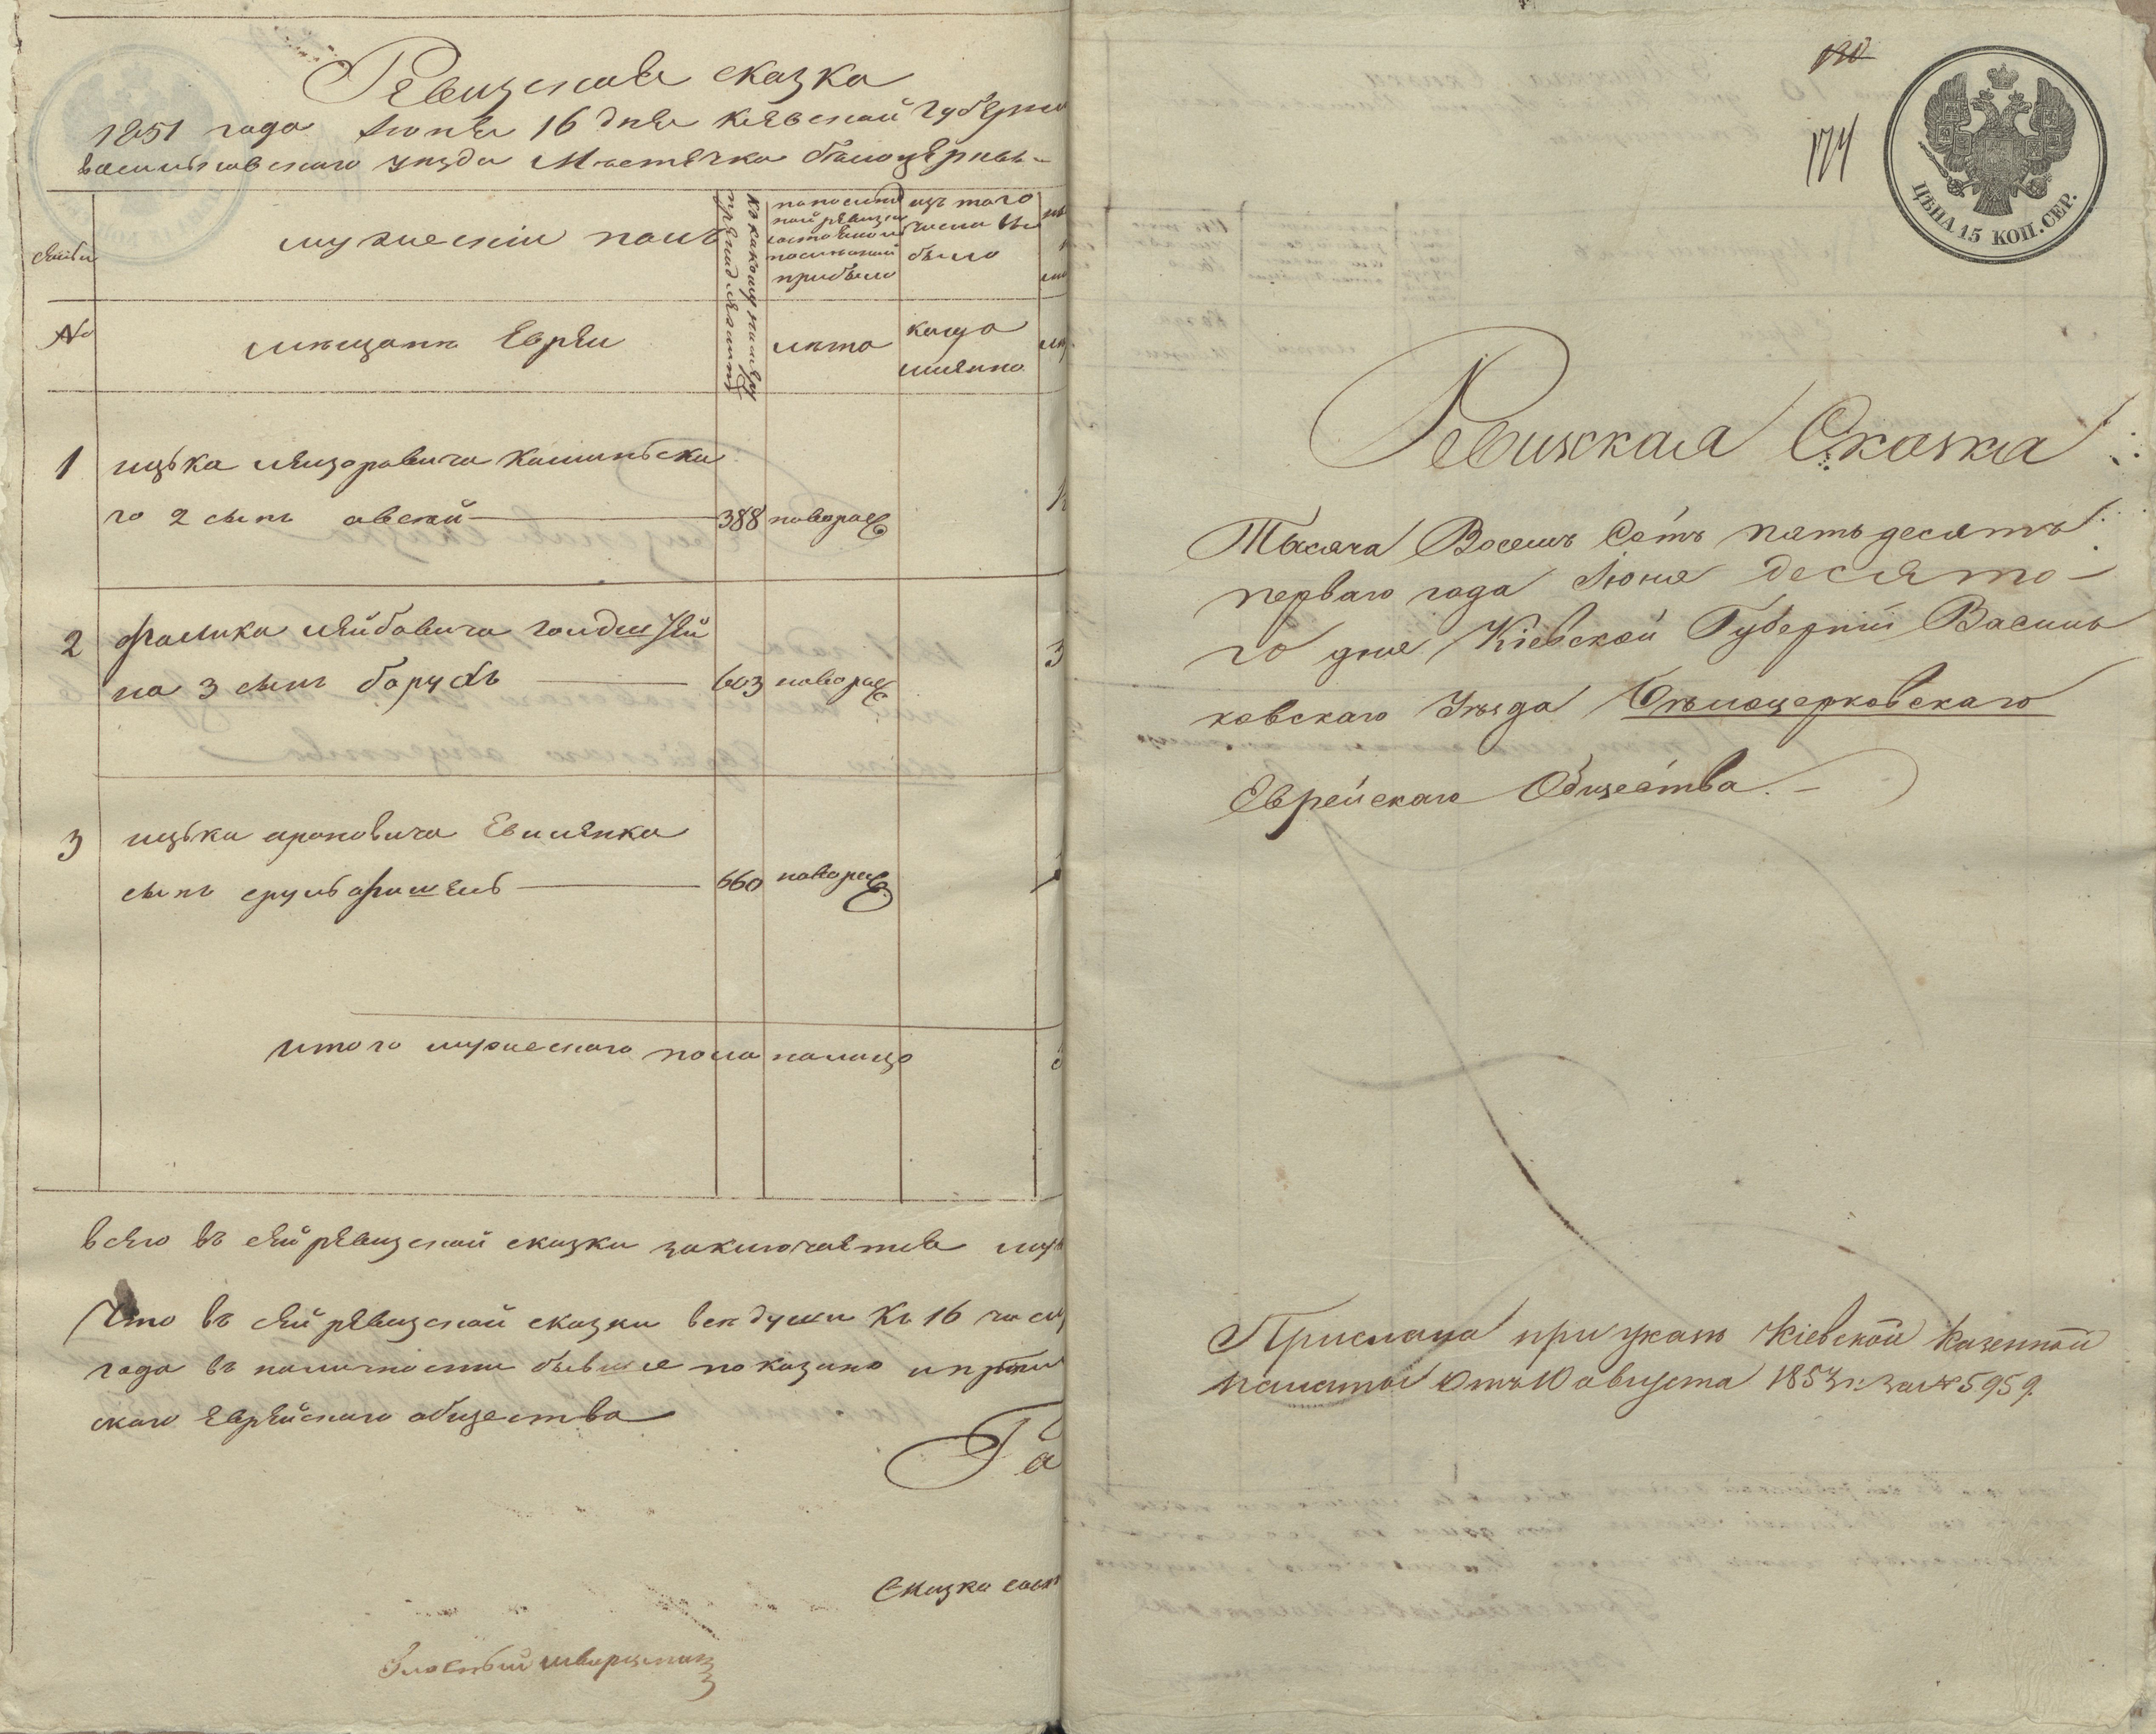 Ревизская сказка
1851 года Июня 16 дня Киевской Губерни
васильковскаго уезда Местечка белоцеркве-
семьи
мужескій полъ
Ко какому нумеру
принадлежитъ
ревизіи
прибыло
изъ того
числа вы
было
№
мещане Евреи
лета
когда
имянно
1 ицька лейзоровича каминьска
го 2 сынъ овсей 388 новорож
2 фалика лейбовича гол
на 3 сынъ борухъ 603 новорож
3
3 ицька ароновича
сынъ срульфишель 660 новорож
итого мужескаго пола налицо
всего въ сей ревизской сказки заключается муж
Что въ сей ревизской сказки все души Къ 16 числ
года въ наличности бывшие показано и
скаго Еврейскаго общества
Сказка
120
174
ЦѢНА 15 КОП. СЕР.
Ревижская Сказка
Тысяча Восемь Сотъ пятьдесятъ
перваго года Июня десято-
го дня Кіевской Губерніи Василь
ковскаго Уезда Белоцерковскаго
Еврейскаго Общества.-
Прислана при указе Кіевской Казенной
палаты Отъ 10 августа 1853 г. за № 5959.